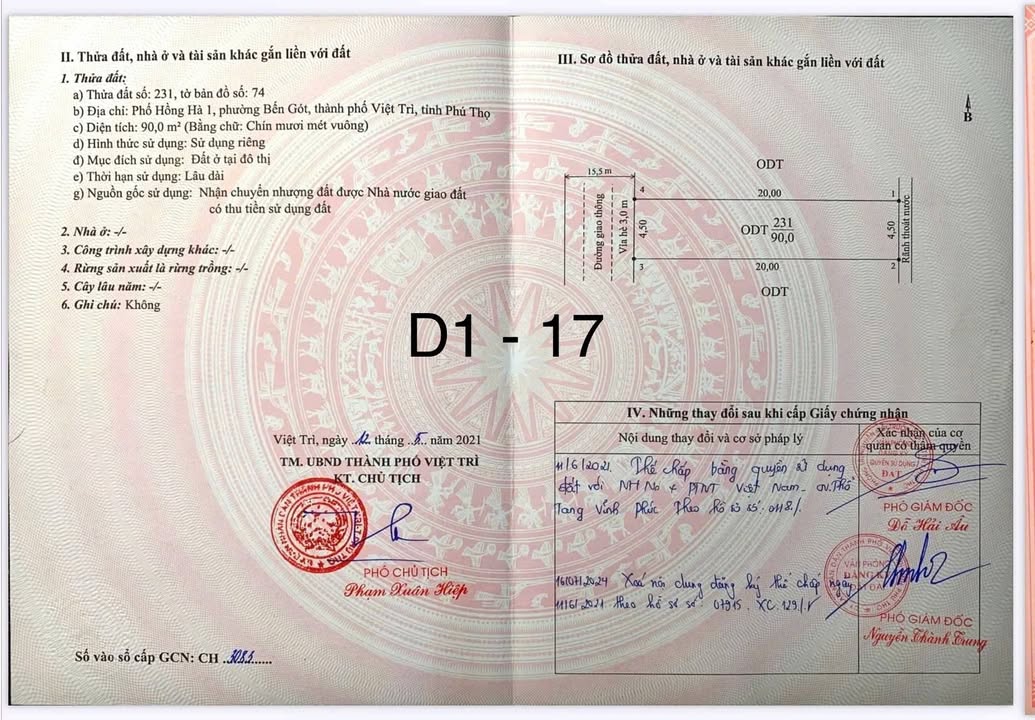 II. Thửa đất, nhà ở và tài sản khác gắn liền với đất
1. Thửa đất:
a) Thửa đất số: 231, tờ bản đồ số: 74
b) Địa chỉ: Phố Hồng Hà 1, phường Bến Gót, thành phố Việt Trì, tỉnh Phú Thọ
c) Diện tích: 90,0 m² (Bằng chữ: Chín mươi mét vuông)
d) Hình thức sử dụng: Sử dụng riêng
đ) Mục đích sử dụng: Đất ở tại đô thị
e) Thời hạn sử dụng: Lâu dài
g) Nguồn gốc sử dụng: Nhận chuyển nhượng đất được Nhà nước giao đất
có thu tiền sử dụng đất
2. Nhà ở: -/-
3. Công trình xây dựng khác: -/-
4. Rừng sản xuất là rừng trồng: -/-
5. Cây lâu năm: -/-
6. Ghi chú: Không
Việt Trì, ngày 12 tháng 5 năm 2021
TM. UBND THÀNH PHỐ VIỆT TRÌ
KT. CHỦ TỊCH
PHÓ CHỦ TỊCH
Phạm Xuân Hiệp
Số vào sổ cấp GCN: CH ..3085......
D1 - 17
III. Sơ đồ thửa đất, nhà ở và tài sản khác gắn liền với đất
B
ODT
15,5 m
4
20,00
1
Đường giao thông
Vỉa hè 3,0 m
4,50
ODT 231
90,0
4,50
Rãnh thoát nước
3
20,00
2
ODT
IV. Những thay đổi sau khi cấp Giấy chứng nhận
Nội dung thay đổi và cơ sở pháp lý
Xác nhận của cơ
quan có thẩm quyền
11/6/2021. Thế chấp bằng quyền sử dụng
đất với NHNo & PTNT Việt Nam - CN. Thổ
Tang Vĩnh Phúc Theo hồ sơ số: 0118./.
PHÓ GIÁM ĐỐC
Đỗ Hải Âu
16/07/2024 Xoá nội dung đăng ký thế chấp ngày
11/6/2021 theo hồ sơ số: 07915. XC. 129/.
PHÓ GIÁM ĐỐC
Nguyễn Thành Trung